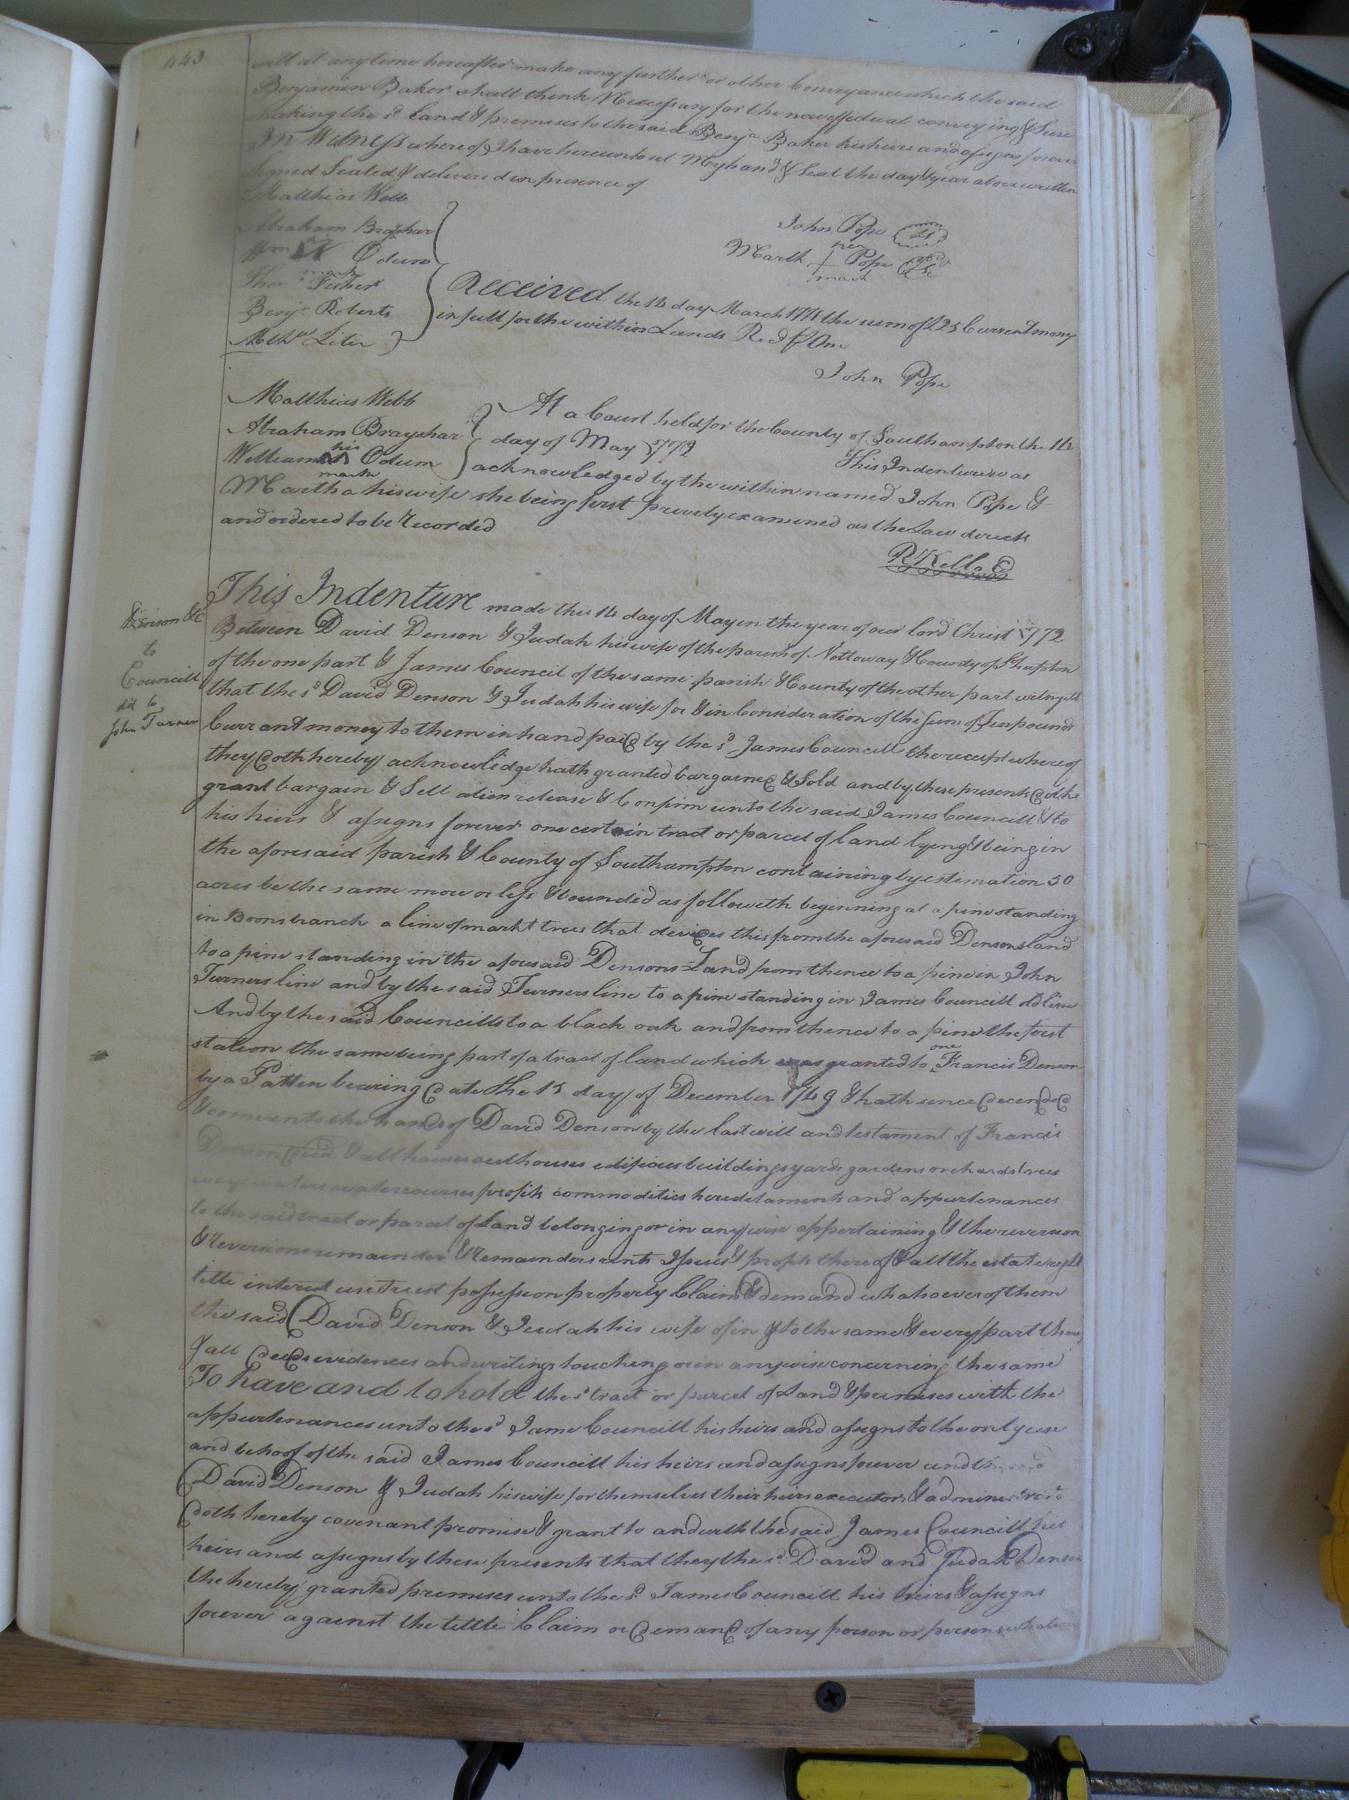 443
will at any time hereafter make any further or other Conveyance which the said
Benjamin Baker shall think Necessary for the more effectual conveying & Sure
making the sd Land & premises to the said Benja Baker his heirs and assigns forever
In Witness whereof I have hereunto set My hand & Seal the day & year above written
Signed Sealed & delivered in presence of
Matthias Webb
Abraham Brayshar
Wm Odum
mark
Thos Fisher
Benja Roberts
John Pope
her
Marth + Pope
mark
Received the 14 day March 1771 the sum of £25 Current mony
in full for the within Lands Recd
John Pope
Matthias Webb
Abraham Brayshar
his
William Odum
mark
At a Court held for the County of Southampton the 14
day of May 1772 This Indenture was
acknowledged by the within named John Pope &
Martha his wife she being first privily examined as the Law directs
and ordered to be recorded
Denson &c
to
Councill
dd to
John Turner
This Indenture made this 14 day of May in the year of our lord Christ 1772
Between David Denson & Judah his wife of the parish of Nottoway & County of
of the one part & James Council of the same parish & County of the other part
that the sd David Denson & Judah his wife for & in Consideration of the Sum of Ten pounds
Currant money to them in hand paid by the sd James Councill the receipt whereof
they doth hereby acknowledge hath granted bargained & Sold and by these presents doth
grant bargain & Sell alien release & Confirm unto the said James Councill & to
his heirs & assigns forever one certain tract or parcel of land lying & being in
the aforesaid parish & County of Southampton containing by estimation 50
acres be the same more or less & bounded as followeth beginning at a pine standing
in Boons branch a line of markt trees that devides this from the aforesaid Densons land
to a pine standing in the aforesaid Densons Land from thence to a pine in John
Turners line and by the said Turners line to a pine standing in James Councill old line
And by the said Councills to a black oak and from thence to a pine the first
station the same being part of a tract of land which was granted to one Francis Denson
by a Patten bearing date the 15 day of December 1749 & hath since decended
& come into the hands of David Denson by the last will and testament of Francis
Denson & all houses outhouses edifices buildings yards gardens orchards trees
watercourses profits commodities hereditaments and appurtenances
to the said tract or parcel of Land belonging or in anywise appertaining & the revercion
& revercions remainder & remainders rents Issues & profits thereof & all the estate right
title interest use trust possession property Claim & demand whatsoever of them
the said David Denson & Judah his wife of in & to the same & every part
& all deeds evidences and writings touching or in anywise concerning the same
To have and to hold the sd tract or parcel of Land & premises with the
appurtenances unto the sd Jame Councill his heirs and assigns to the only use
and behoof of the said James Councill his heirs and assigns forever and
David Denson & Judah his wife for themselves their heirs executors &
doth hereby covenant promise & grant to and with the said James Councill his
heirs and assigns by these presents that they the sd David and Judah Denson
the hereby granted premises unto the sd James Councill his heirs & assigns
forever against the tittle Claim or demand of any person or persons